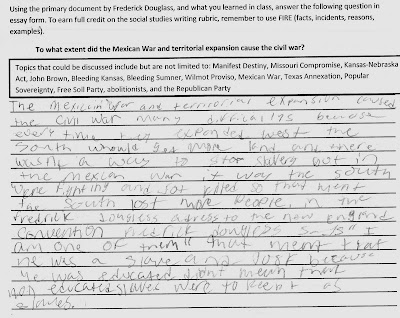 Using the primary document by Frederick Douglass, and what you learned in class, answer the following question in
essay form. To earn full credit on the social studies writing rubric, remember to use FIRE (facts, incidents, reasons,
examples).
To what extent did the Mexican War and territorial expansion cause the civil war?
Topics that could be discussed include but are not limited to: Manifest Destiny, Missouri Compromise, Kansas-Nebraska
Act, John Brown, Bleeding Kansas, Bleeding Sumner, Wilmot Proviso, Mexican War, Texas Annexation, Popular
Sovereignty, Free Soil Party, abolitionists, and the Republican Party
The mexican war and territorial expansion caused
the civil war many because
every time they expanded west the
South would get more land and there
a way to stop slavery but in
the mexican war it was the south
were fighting and got killed so that ment
the South lost more people, in the
adress to the new england
convention "I
am one of them" that ment that
he was a slave and just because
he was educated didnt mean that
educated slaves were to kept as
slaves.